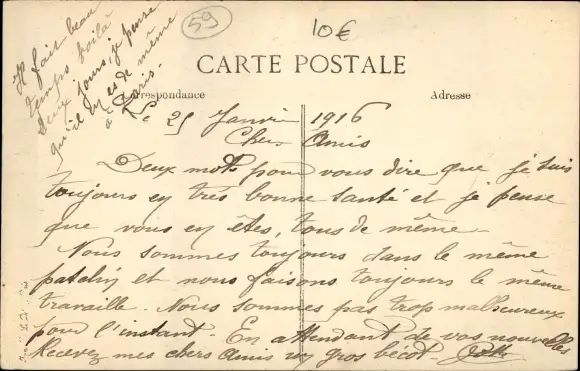 59
10€
Il fait beau
temps voilà
Deux jours, je pense
qu'il en es de même
à Paris.
CARTE POSTALE
Correspondance
Adresse
Le 25 Janvier 1916
Chers Amis
Deux mots pour vous dire que je suis
toujours en très bonne santé et je pense
que vous en êtes, tous de même.
Nous sommes toujours dans le même
patelin et nous faisons toujours le même
travaille. Nous sommes pas trop malheureux
pour l'instant. En attendant de vos nouvelles
Recevez mes chers Amis un gros bécot.